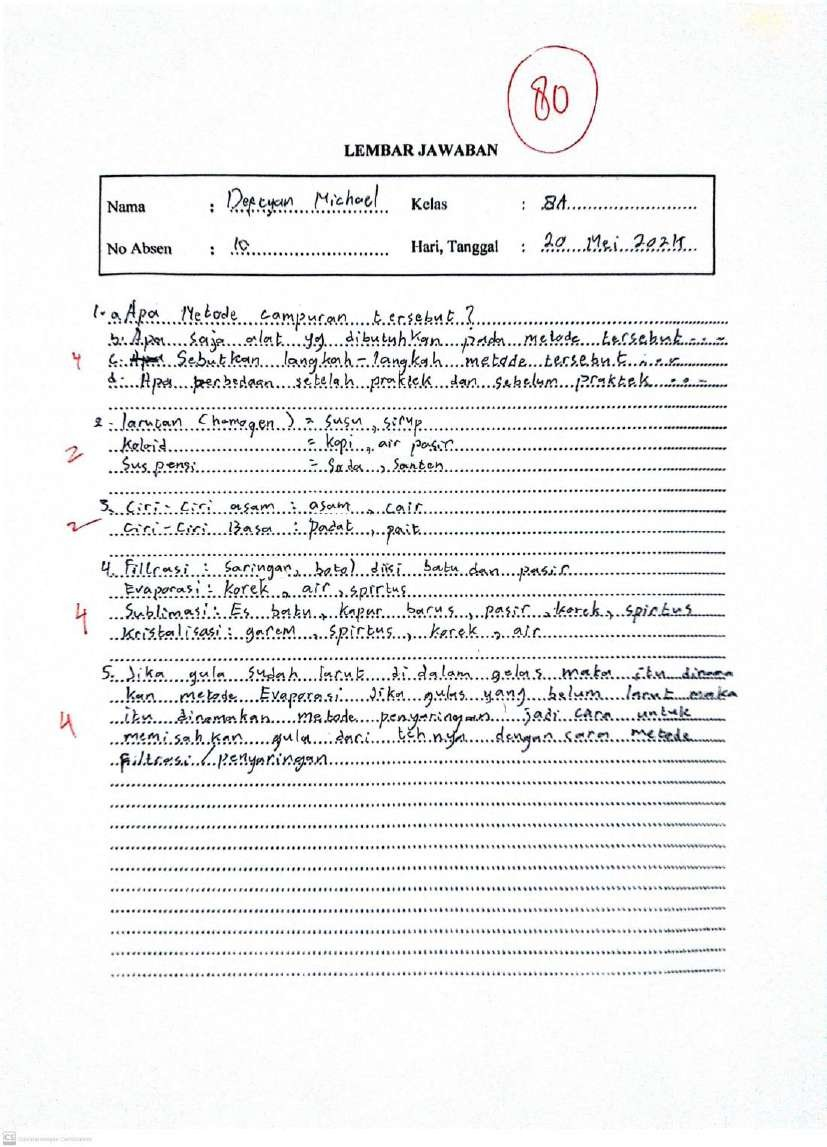 80
LEMBAR JAWABAN
Nama : Michael Kelas : 8A
No Absen : 10 Hari, Tanggal : 20 Mei 2024
1. a. Apa Metode campuran tersebut?
b. Apa saja alat yg dibutuhkan pada metode tersebut...
4 c. Sebutkan langkah-langkah metode tersebut...
d. Apa perbedaan setelah praktek dan sebelum praktek...
2. larutan (homogen) = susu, sirup
2 Koloid = kopi, air pasir
Suspensi = Soda, Santen
3. Ciri-Ciri asam : asam, cair
2 Ciri-Ciri Basa : Padat, pait
4. Filtrasi : saringan, botol diisi batu dan pasir
Evaporasi : korek, air, spirtus
4 Sublimasi : Es batu, kapur barus, pasir, korek, spirtus
Kristalisasi : garem, spirtus, korek, air
5. Jika gula sudah larut di dalam gelas maka itu dinama
kan metode Evaporasi Jika gulas yang belum larut maka
4 itu dinamakan metode penyaringan jadi cara untuk
memisahkan gula dari tehnya dengan cara metode
filtrasi / penyaringan
CS